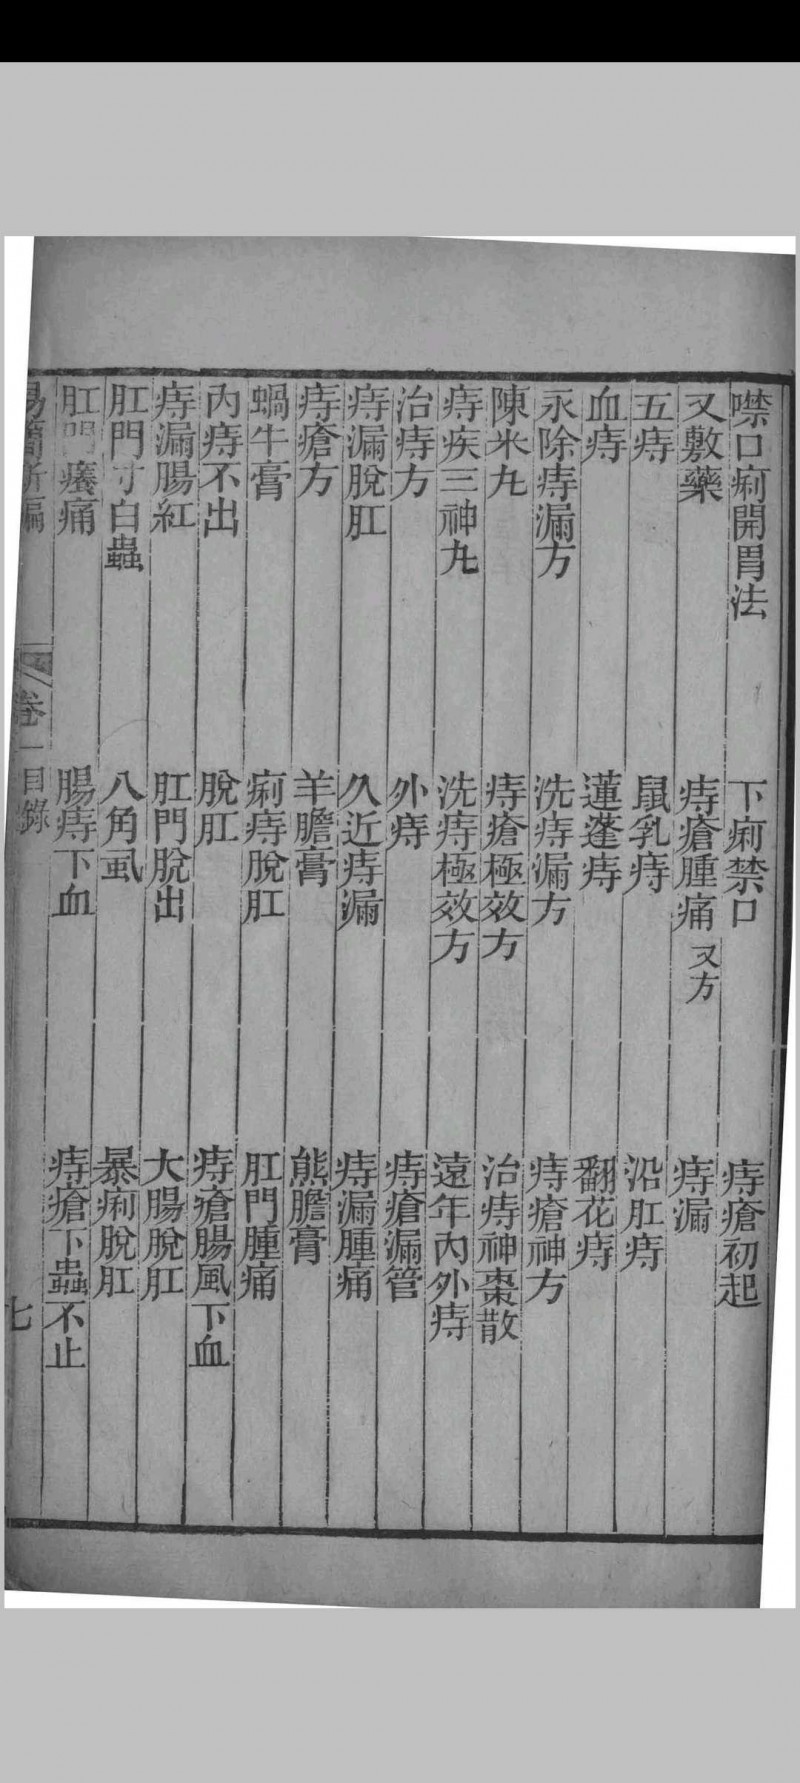 噤口痢開胃法　下痢禁口　痔瘡初起
又敷藥　痔瘡腫痛 又方　痔漏
五痔　鼠乳痔　沿肛痔
血痔　蓮蓬痔　翻花痔
永除痔漏方　洗痔漏方　痔瘡神方
陳米丸　痔瘡極效方　治痔神棗散
痔疾三神丸　洗痔極效方　遠年內外痔
治痔方　外痔　痔瘡漏管
痔漏脫肛　久近痔漏　痔漏腫痛
痔瘡方　羊膽膏　熊膽膏
蝸牛膏　痢痔脫肛　肛門腫痛
內痔不出　脫肛　痔瘡腸風下血
痔漏腸紅　肛門脫出　大腸脫肛
肛門寸白蟲　八角虱　暴痢脫肛
肛門癢痛　腸痔下血　痔瘡下蟲不止
易簡新編　卷一目錄　七